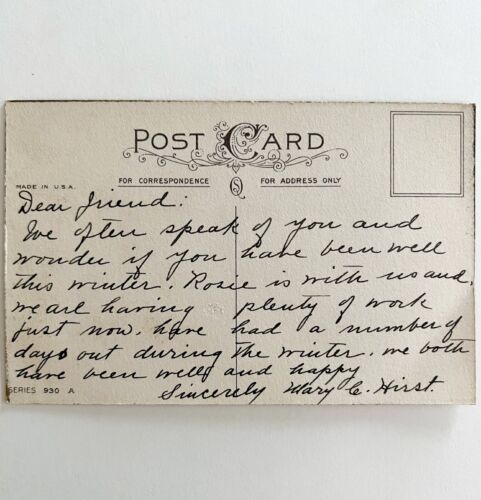 POST CARD
MADE IN U.S.A.
FOR CORRESPONDENCE S FOR ADDRESS ONLY
Dear friend:
We often speak of you and
wonder if you have been well
this winter. Rosie is with us and,
we are having plenty of work
just now. have had a number of
days out during the winter. we both
have been well and happy
SERIES 930 A
Sincerely Mary C. Hirst.